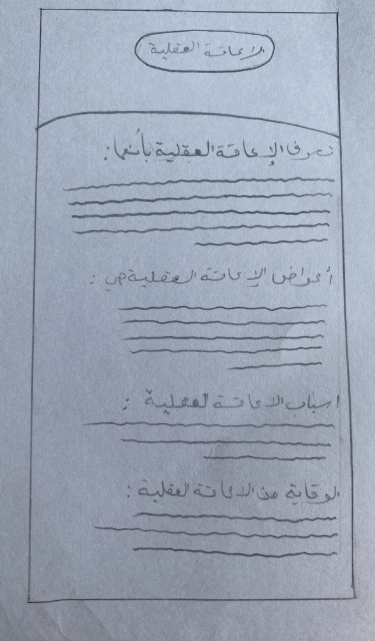 الاعاقة العقلية
تعرف الإعاقة العقلية بأنها:
أعراض الإعاقة العقلية هي:
اسباب الاعاقة العقلية:
الوقاية من الاعاقة العقلية: